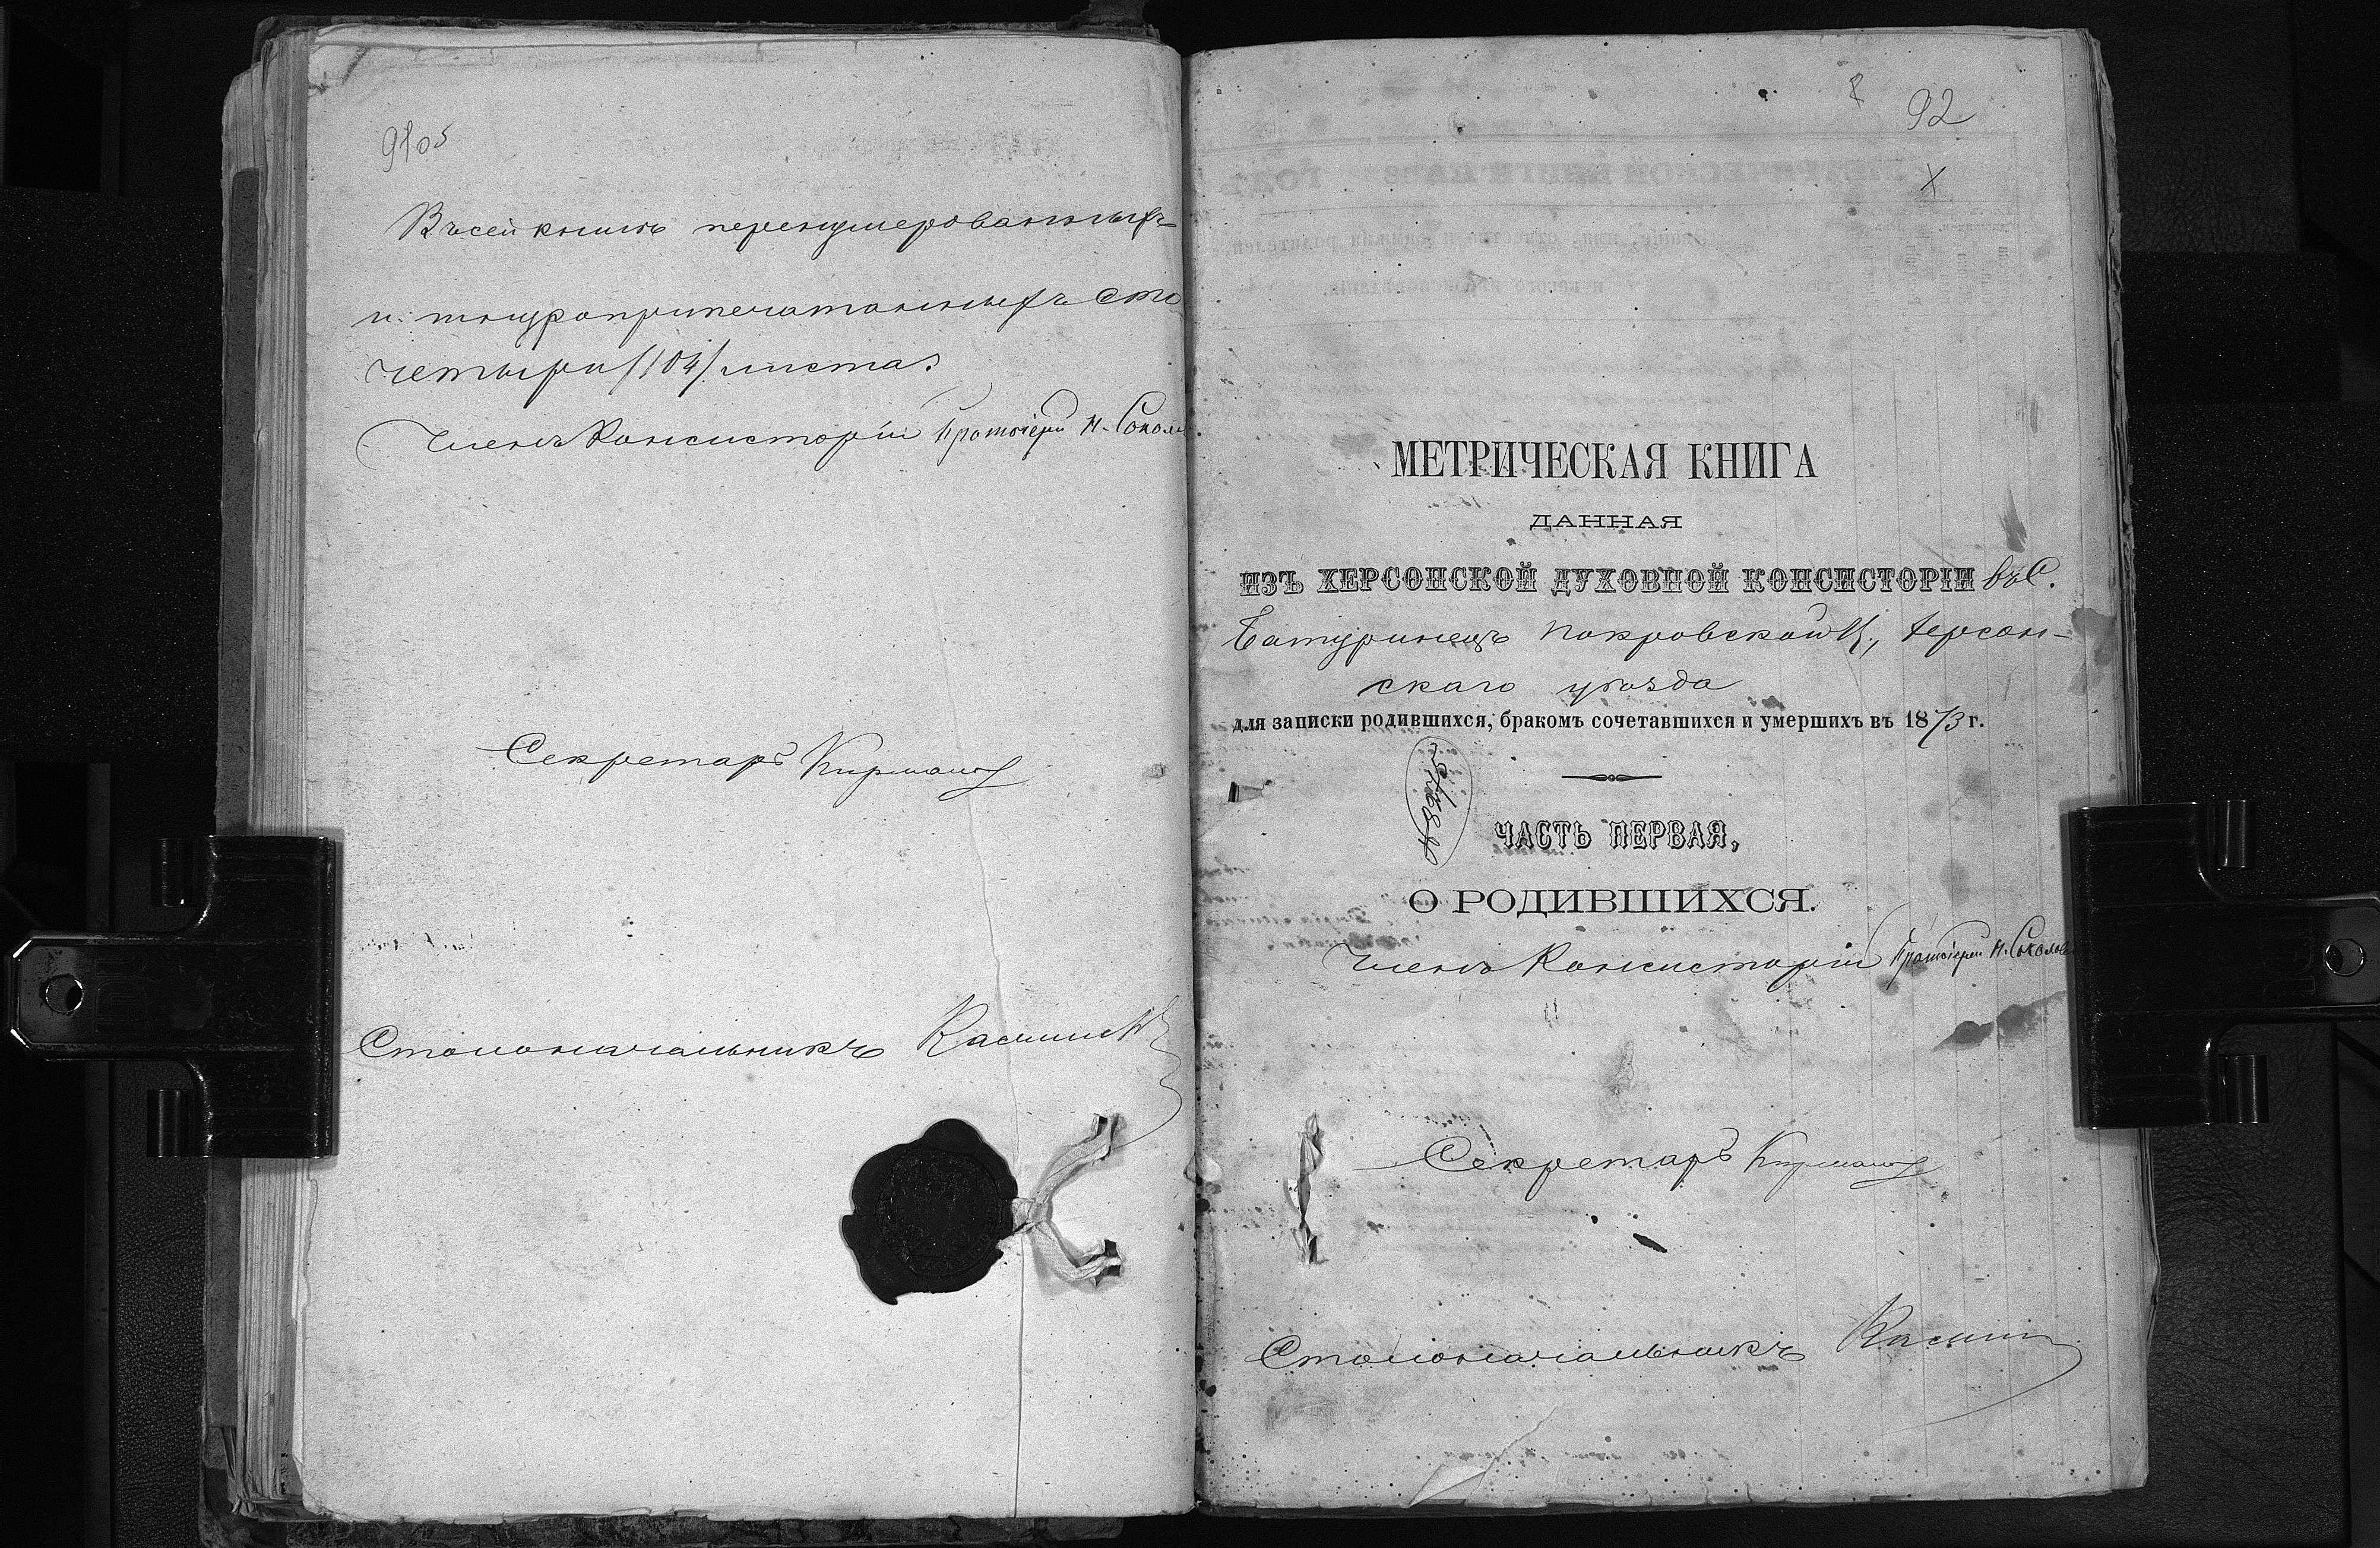 Въ сей книгѣ перенумерованныхъ
и шнуроприпечатанныхъ сто
четыри /104/ листа.
Членъ Консисторіи Протоіерей Н. Соколо
Секретарь
Столоначальникъ
92
X
МЕТРИЧЕСКАЯ КНИГА
ДАННАЯ
ИЗЪ ХЕРСОНСКОЙ ДУХОВНОЙ КОНСИСТОРІИ въ С.
Батуринецъ Покровской Ц., Херсон-
скаго уѣзда
для записки родившихся, бракомъ сочетавшихся и умершихъ въ 1873 г.
ЧАСТЬ ПЕРВАЯ,
О РОДИВШИХСЯ.
Членъ Консисторіи Протоіерей Н. Соколов
Секретарь
Столоначальникъ